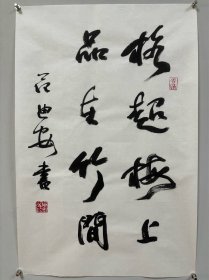 格超梅上
品在竹間
范迪安書